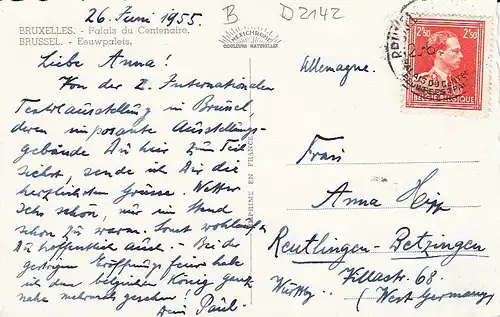 26. Juni 1955.
B
D 2142
BRUXELLES. - Palais du Centenaire.
BRUSSEL. - Eeuwpaleis.
MEXICHROME
COULEURS NATURELLES
Liebe Anna!
Von der 2. Internationalen
Textilausstellung in Brüssel,
deren imposante Ausstellungs-
gebäude Du hier zum Teil
siehst, sende ich Dir die
herzlichsten Grüsse. Wetter
sehr schön, nur im Stand
schon zu warm. Sonst wohlauf,
Du hoffentlich auch. - Bei der
gestrigen Eröffnungsfeier habe
ich den belgischen König ganz
nahe mehrmals gesehen!
Dein Paul.
IMPRIMÉ EN FRANCE
Allemagne.
2F50 2F50
BELGIE-BELGIQUE
Frau
Anna Hipp
Reutlingen-Betzingen
Villastr. 68.
Württbg.
(West Germany)